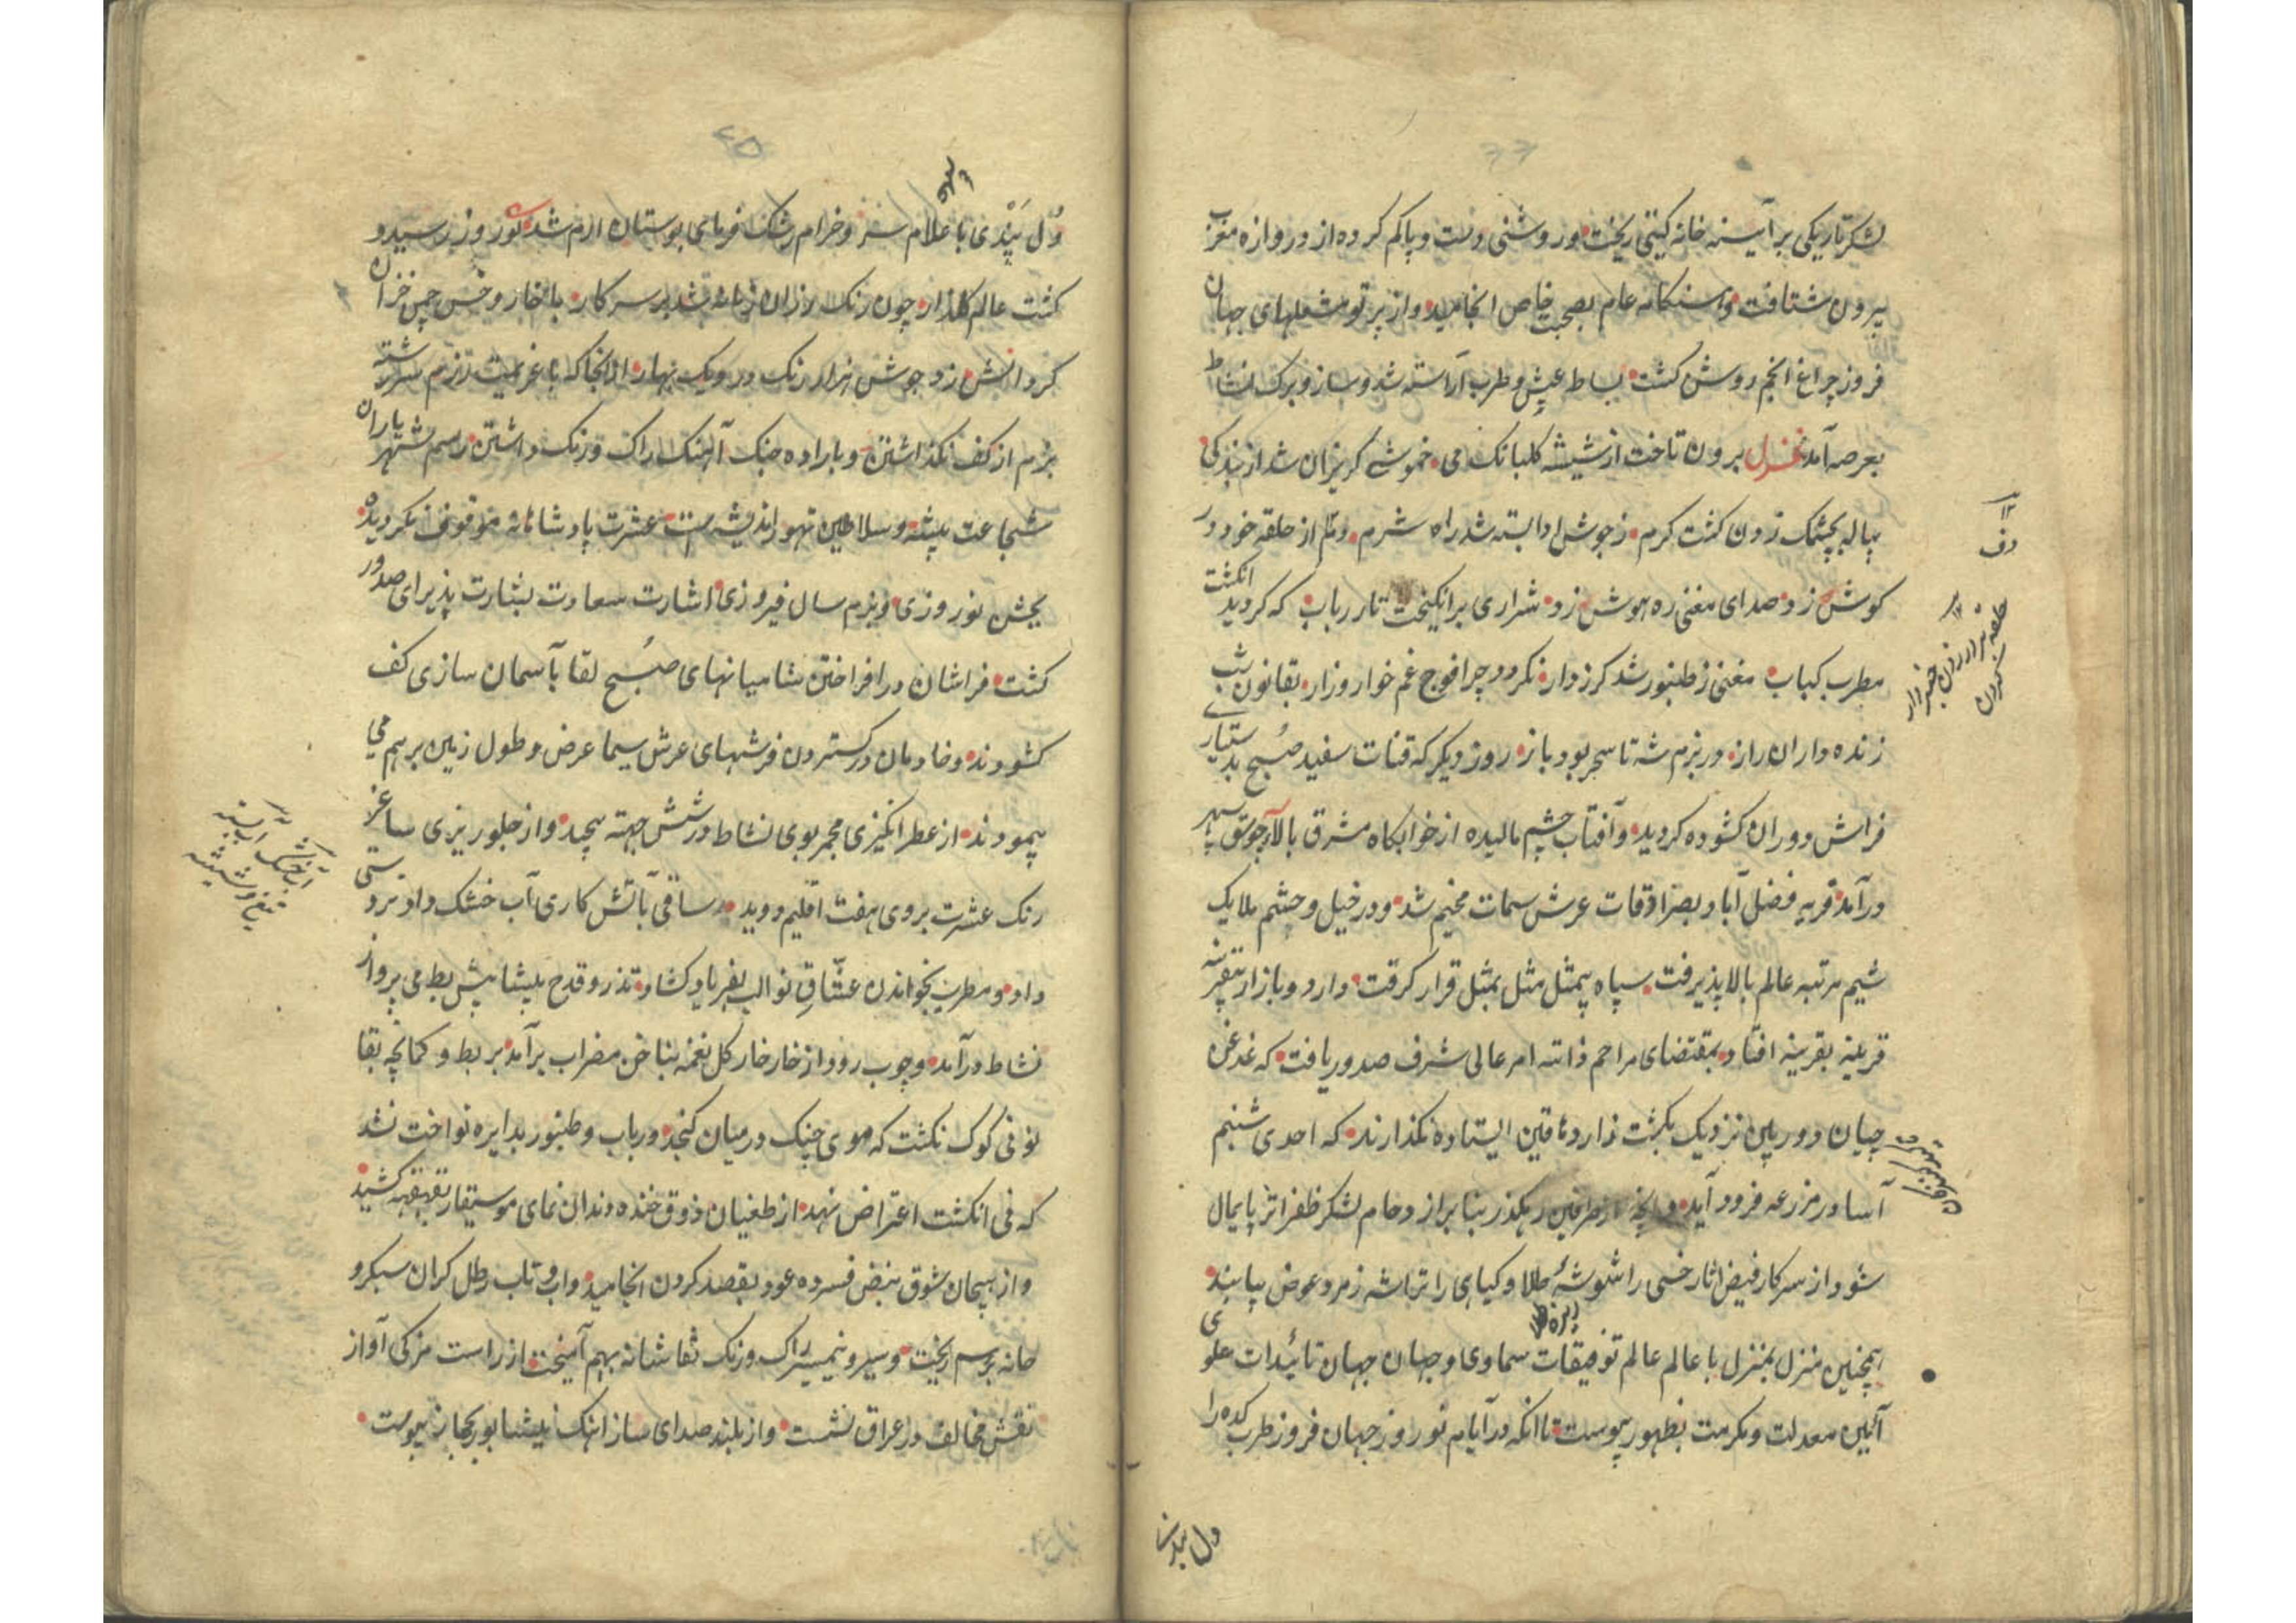 لشکر تاریکی بر آیینه خانه گیتی ریخت و روشنی دست و پا گم کرده از دروازه مغرب
بیرون شتافت و هنگامه عام بصحبت خاص انجامید و از پرتو مشعلهای جهان
فروز چراغ انجم روشن گشت بساط عیش و طرب آراسته شد و ساز و برگ نشاط
بعرصه آمد غزل برون تاخت از شیشه گلبانگ می خموشی گریزان شد از بند کی
پیاله بچشمک زدن گشت گرم ز جوش ادا بسته شد راه شرم از حلقه خود در
گوش زد صدای مغنی ره هوش زد شراری برانگیخت تار رباب که گردید انگشت
مطرب کباب مغنی ز طنبور شد گرزدار نگردد چرا فوج غم خوار و زار بقانون شب
زنده داران راز در بزم شه تا سحر بود باز روز دیگر که قنات سفید صبح بدستیاری
فراش دوران گشوده گردید و آفتاب چشم مالیده از خوابگاه مشرق بالا سپهر
درآمد قریه فضل آباد بصرادقات عرش سمات مخیم شد و در خیل و حشم ملایک
شیم مرتبه عالم بالا پذیرفت سپاه بیمثل مثل بمثل قرار گرفت و اردو بازار بقرینه
قرینه بقرینه افتاد بمقتضای مراحم ذاتیه امر عالی شرف صدور یافت که غدغن
چیان دوربین نزدیک بکشت زار دهاقین ایستاده نگذارند که احدی شبنم
آسا در مزرعه فرود آید و آنچه از طرفین رهگذر بنا بر ازدحام لشکر ظفر اثر پایمال
شود از سرکار فیض اثار خسی را شوشه طلا و گیاهی را تراشه زمرد عوض بیابند
همچنین منزل بمنزل با عالم عالم توفیقات سماوی و جهان جهان تائیدات علوی
آئین معدلت و مکرمت بظهور پیوست تا انکه در ایام نوروز جهان فروز طربکده را
دف
دل پندی با غلام سفر و خرام رشک فرمای بوستان ارم شد نوروز رسید و
گشت عالم گلزار چون رنگ رزان زمانه شد بر سر کار با خار و خس چمن خزان
کرد آتش زد جوش هزار رنگ در دیگ بهار از انجا که با عزیمت رزم سررشته
بزم از کف نگذاشتن و باراده جنگ آهنگ راگ و رنگ داشتن رسم شهریاران
شجاعت پیشه و سلاطین تهور اندیشه است عشرت پادشاهانه موقوف نگردید
بجشن نوروزی و بزم سال فیروزی اشارت سعادت بشارت پذیرای صدور
گشت فراشان در افراختن شامیانهای صبح لقا بآسمان سازی کف
گشودند و خادمان در گستردن فرشهای عرش سیما عرض و طول زمین بر هم می
پیمودند از عطر انگیزی مجمر بوی نشاط در شش جهته پیچید و از جلوریزی ساغر
رنگ عشرت بروی هفت اقلیم دوید ساقی بآتش کاری آب خشک داد تردستی
داد و مطرب بخواندن عشاق نوا لب بفریاد گشاد تذرو قدح بپیشاپیش بط می پرواز
نشاط درآمد و چوب رود از خار خار گل نغمه بناخن مضراب برآمد بربط و کمانچه بقا
نونی کوک نگشت که موی چنگ در میان گنجد و رباب و طنبور بدایره نواخت نشد
که نی انگشت اعتراض نهد از طغیان ذوق خنده دندان نمای موسیقار بقهقهه کشید
و از هیجان شوق نبض فسرده عود بقصد کردن انجامید و آب و تاب رطل گران سبکرو
حانه بر هم ریخت و سیر و نیمسیر راگ و رنگ بهم آمیخت از راست مزگی آواز
نقش مخالف در عراق نشست و از بلند صدای ساز اهنگ نیشابور بحجاز پیوست